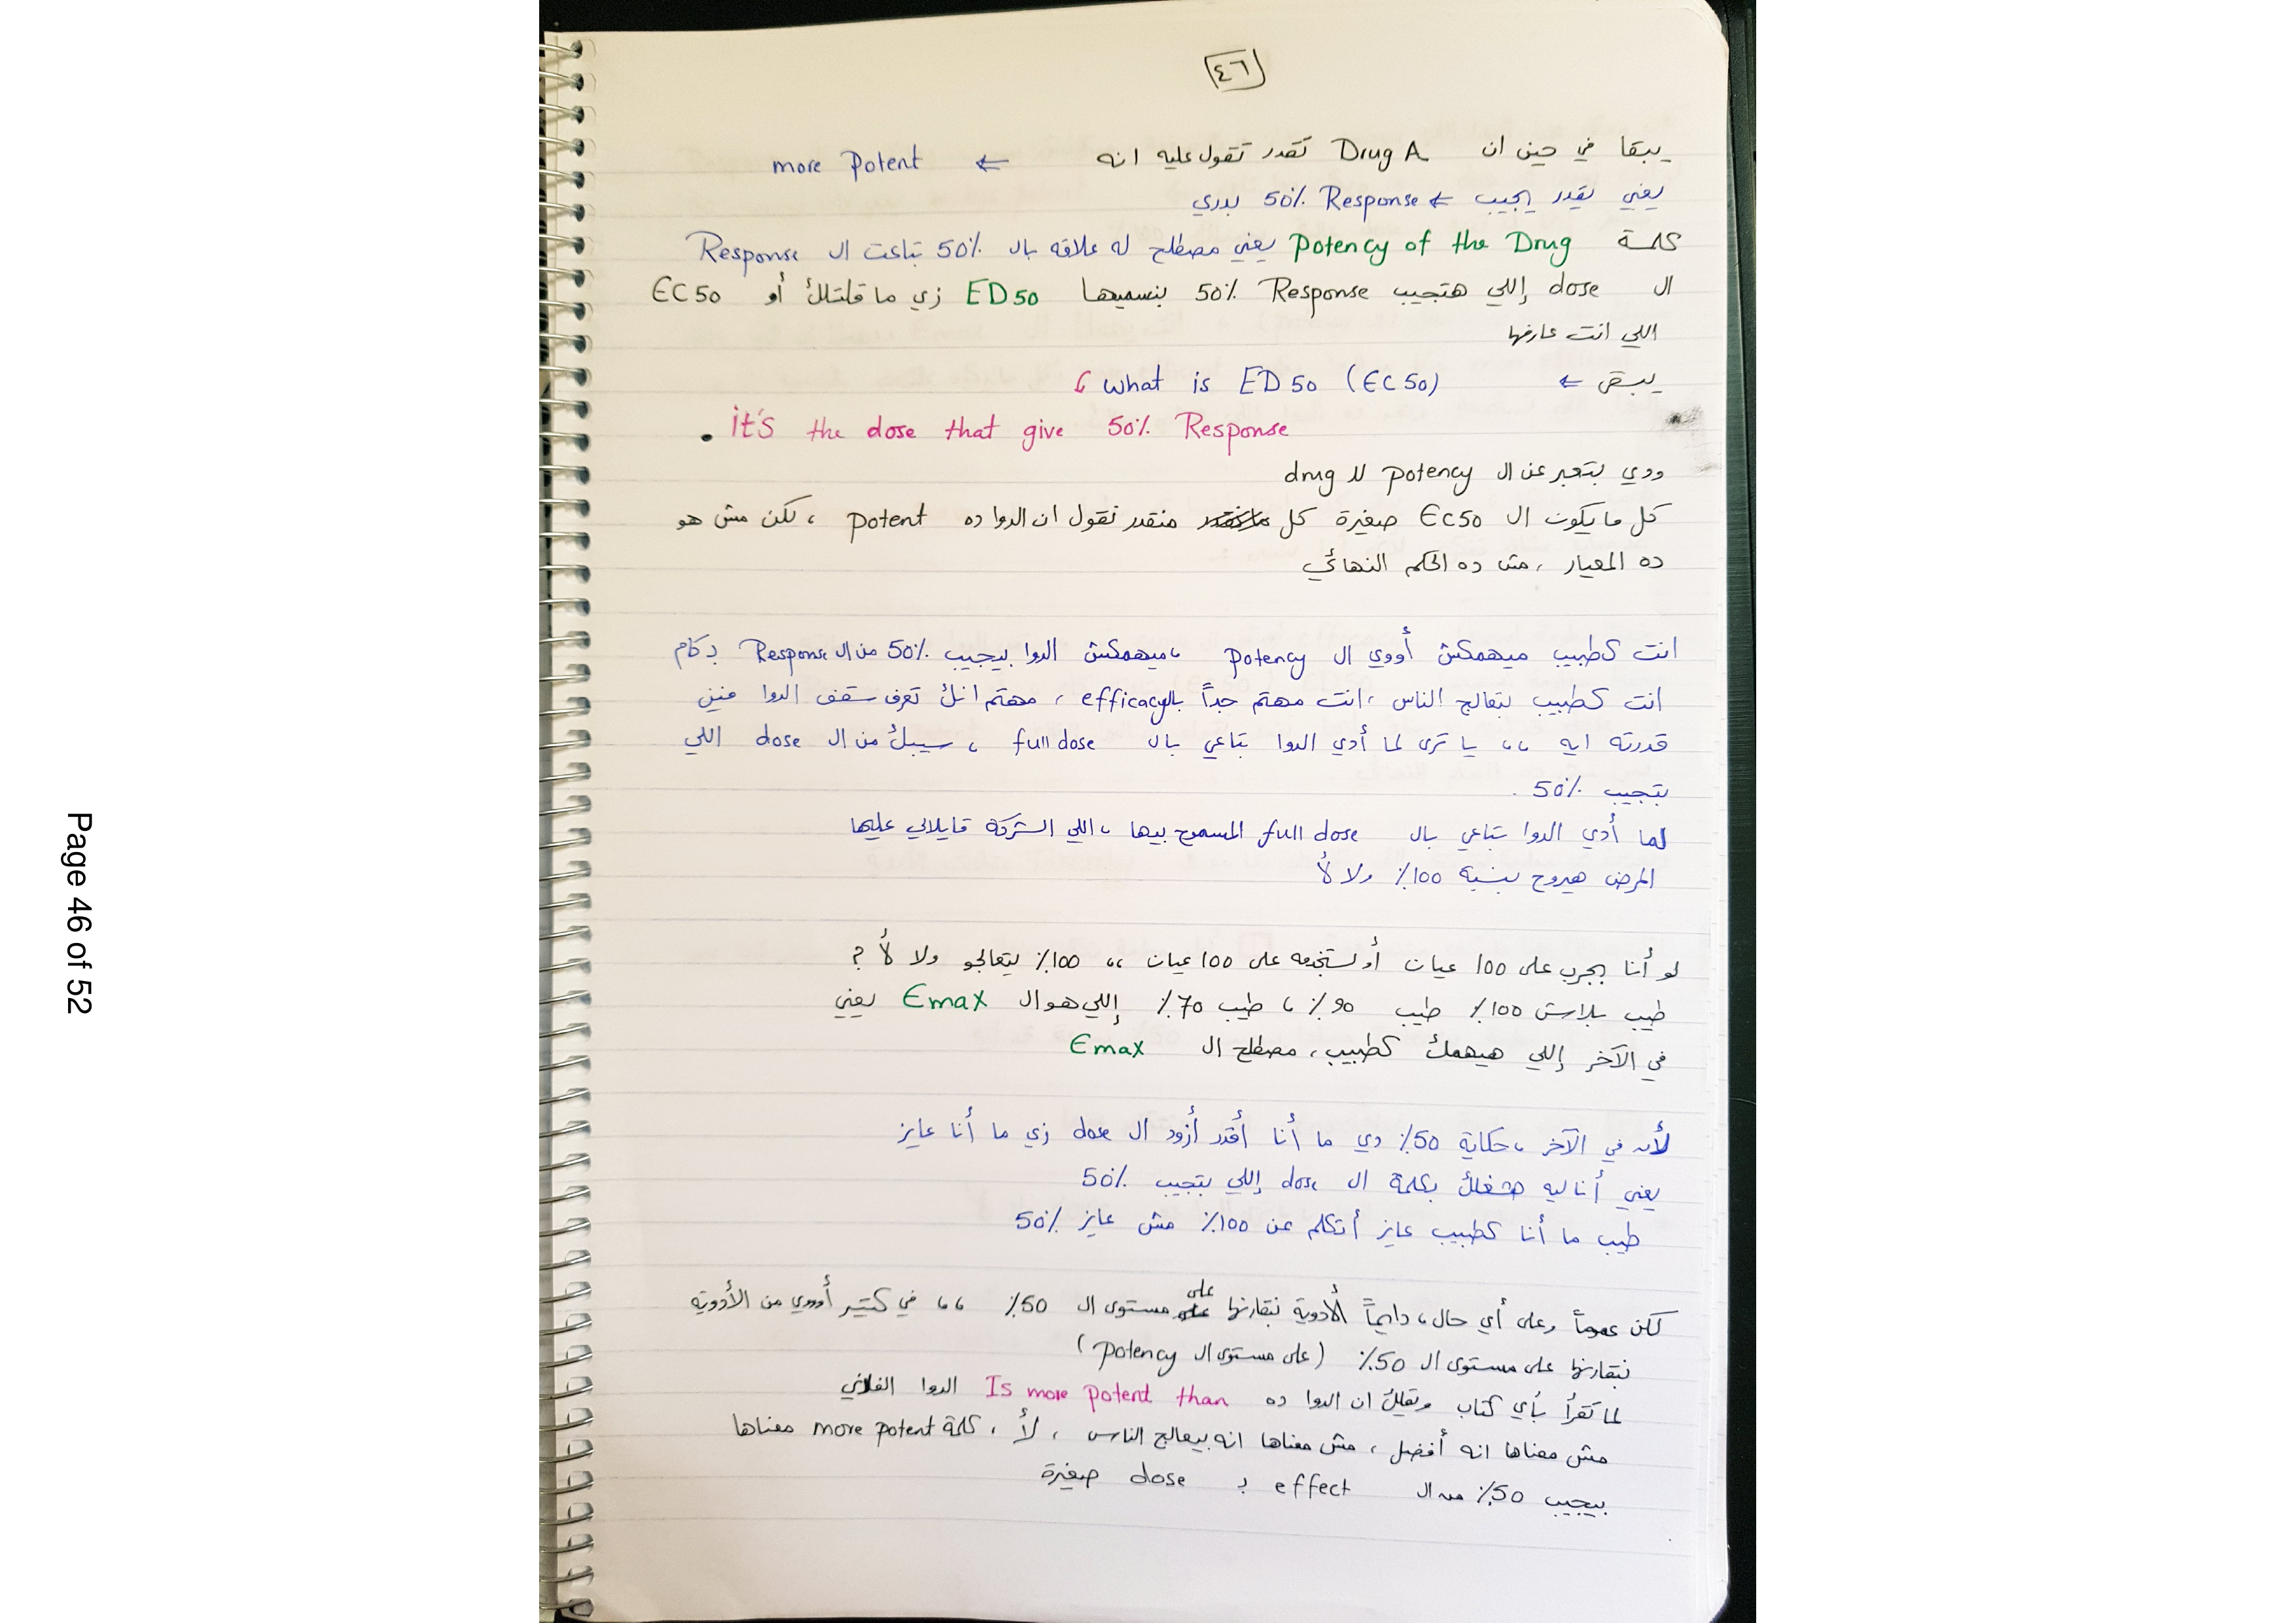 ٤٦
يبقا في حين ان Drug A تقدر تقول عليه انه ← more Potent
يعني يقدر يجيب ← 50% Response بدري
كلمة Potency of the Drug يعني مصطلح له علاقه بال 50% بتاعت ال Response
ال dose إللي هتجيب 50% Response بنسميها ED50 زي ما قلتلك أو EC50
اللي انت عارفها
يبقى ← what is ED50 (EC50)
it's the dose that give 50% Response .
ودي بتعبر عن ال potency لل drug
كل ما يكون ال EC50 صغيرة كل منقدر نقول ان الدوا ده potent ، لكن مش هو
ده المعيار ، مش ده الحكم النهائي
انت كطبيب ميهمكش أووي ال potency ، ميهمكش الدوا بيجيب 50% من ال Response بكام
انت كطبيب بتعالج الناس ، انت مهتم جداً بال efficacy ، مهتم انك تعرف سقف الدوا فين
قدرته ايه ،، يا ترى لما أدي الدوا بتاعي بال full dose ، سيبك من ال dose اللي
بتجيب 50% .
لما أدي الدوا بتاعي بال full dose المسموح بيها ، اللي الشركة قايلالي عليها
المرض هيروح بنسبة 100% ولا لأ
لو أنا بجرب على 100 عيان أو بستخدمه على 100 عيان ،، 100% بيتعالجو ولا لأ ؟
طيب بلاش 100% طيب 90% ، طيب 70% إللي هو ال Emax يعني
في الآخر إللي هيهمك كطبيب ، مصطلح ال Emax
لأن في الآخر ، حكاية 50% دي ما أنا أقدر أزود ال dose زي ما أنا عايز
يعني أنا ليه هشغلك بكلمة ال dose إللي بتجيب 50%
طيب ما أنا كطبيب عايز أتكلم عن 100% مش عايز 50%
لكن عموماً وعلى أي حال ، دايماً الأدوية نقارنها على مستوى ال 50% ،، في كتير أوووي من الأدوية
نقارنها على مستوى ال 50% (على مستوى ال potency)
لما تقرأ بأي كتاب ويقلك ان الدوا ده Is more potent than الدوا الفلاني
مش معناها انه أفضل ، مش معناها انه بيعالج الناس ، لأ ، كلمة more potent معناها
بيجيب 50% من ال effect ب dose صغيرة
Page 46 of 52